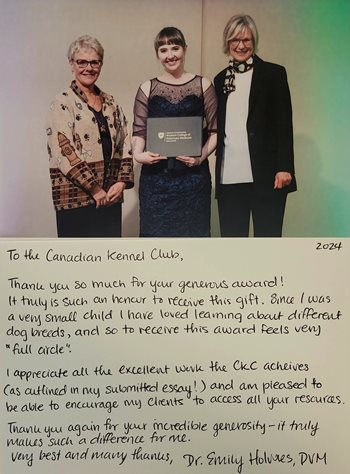 Western College of
Veterinary Medicine
2024
To the Canadian Kennel Club,
Thank you so much for your generous award!
It truly is such an honour to receive this gift. Since I was
a very small child I have loved learning about different
dog breeds, and so to receive this award feels very
"full circle".
I appreciate all the excellent work the CKC acheives
(as outlined in my submitted essay!) and am pleased to
be able to encourage my clients to access all your resources.
Thank you again for your incredible generosity - it truly
makes such a difference for me.
Very best and many thanks, Dr. Emily Holwes, DVM